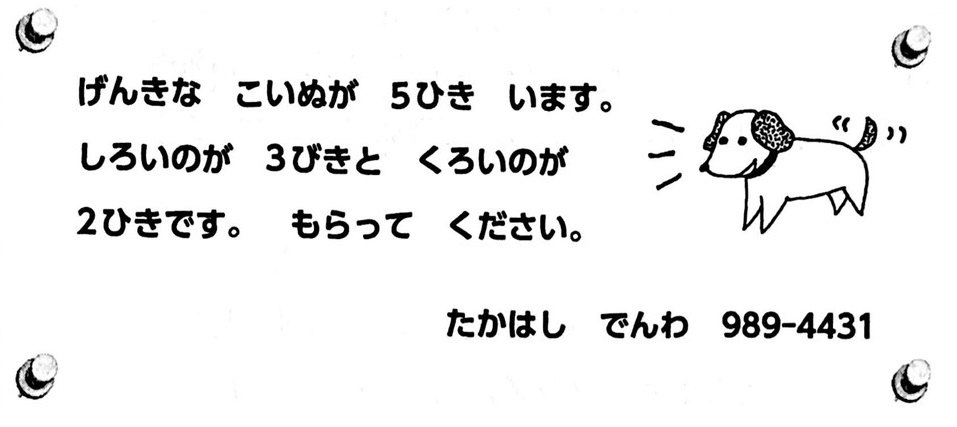 げんきな　こいぬが　５ひき　います。
しろいのが　３びきと　くろいのが
２ひきです。　もらって　ください。
たかはし　でんわ　989-4431